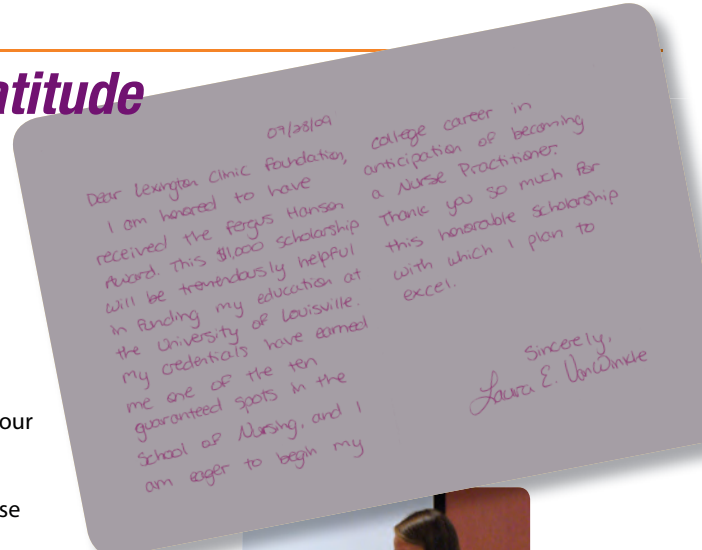 atitude
09/28/09
Dear Lexington Clinic Foundation,
I am honored to have
received the Fergus Hanson
Award. This $1,000 scholarship
will be tremendously helpful
in funding my education at
the University of Louisville.
My credentials have earned
me one of the ten
guaranteed spots in the
School of Nursing, and I
am eager to begin my
college career in
anticipation of becoming
a Nurse Practitioner.
Thank you so much for
this honorable scholarship
with which I plan to
excel.
Sincerely,
Laura E. VanWinkle
our
se